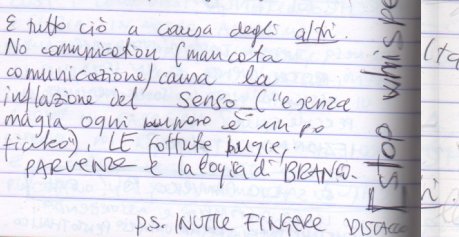 E tutto ciò a causa degli altri.
No comunication (mancata
comunicazione) causa la
inflazione del senso ("e senza
magia ogni è un po
LE fottute bugie,
PARVENZE e la logica di BRANCO.
PS. INUTILE FINGERE DISTACCO
stop